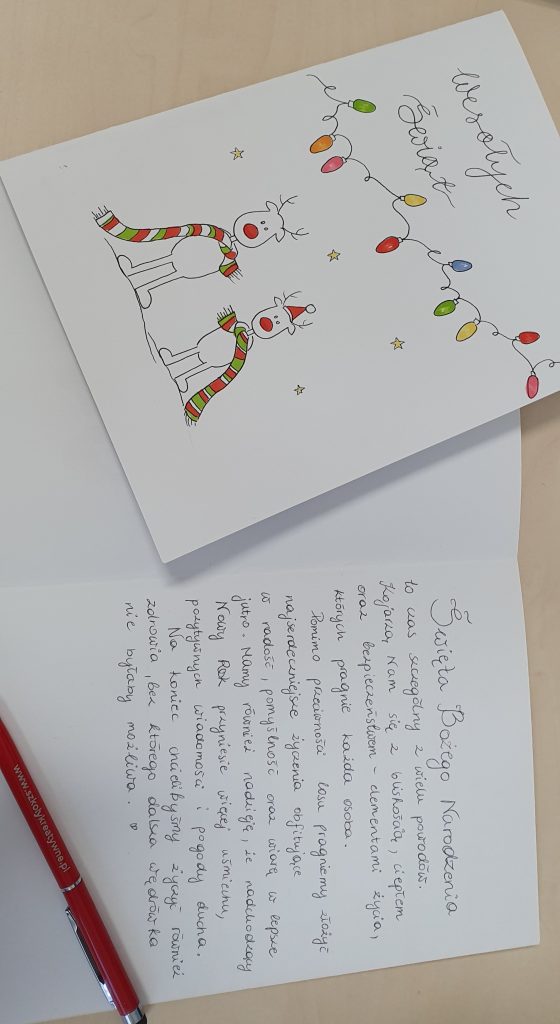 Wesołych
Świąt
Święta Bożego Narodzenia
to czas szczególny z wielu powodów.
Kojarzą Nam się z bliskością, ciepłem
oraz bezpieczeństwem - elementami życia,
których pragnie każda osoba.
Pomimo przeciwności losu pragniemy złożyć
najserdeczniejsze życzenia obfitujące
w radość, pomyślność oraz wiarę w lepsze
jutro. Mamy również nadzieję, że nadchodzący
Nowy Rok przyniesie więcej uśmiechu,
pozytywnych wiadomości i pogody ducha.
Na koniec chcielibyśmy życzyć również
zdrowia, bez którego dalsza wędrówka
nie byłaby możliwa. ♡
www.szkolykreatywne.pl